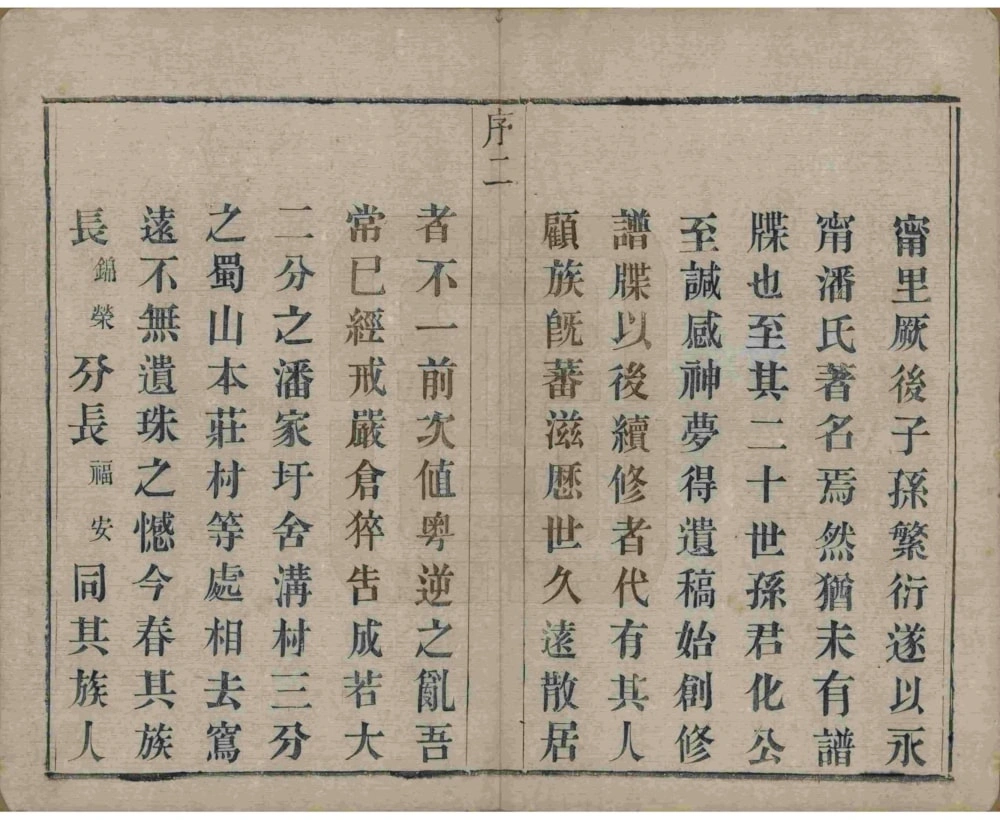 甯里厥後子孫繁衍遂以永
甯潘氏著名焉然猶未有譜
牒也至其二十世孫君化公
至諴感神夢得遺稿始創修
譜牒以後續修者代有其人
顧族旣蕃滋歷世久遠散居
序二
者不一前次值粵逆之亂吾
常已經戒嚴倉猝告成若大
二分之潘家圩舍溝村三分
之蜀山本莊村等處相去窵
遠不無遺珠之憾今春其族
長錦榮分長福安同其族人